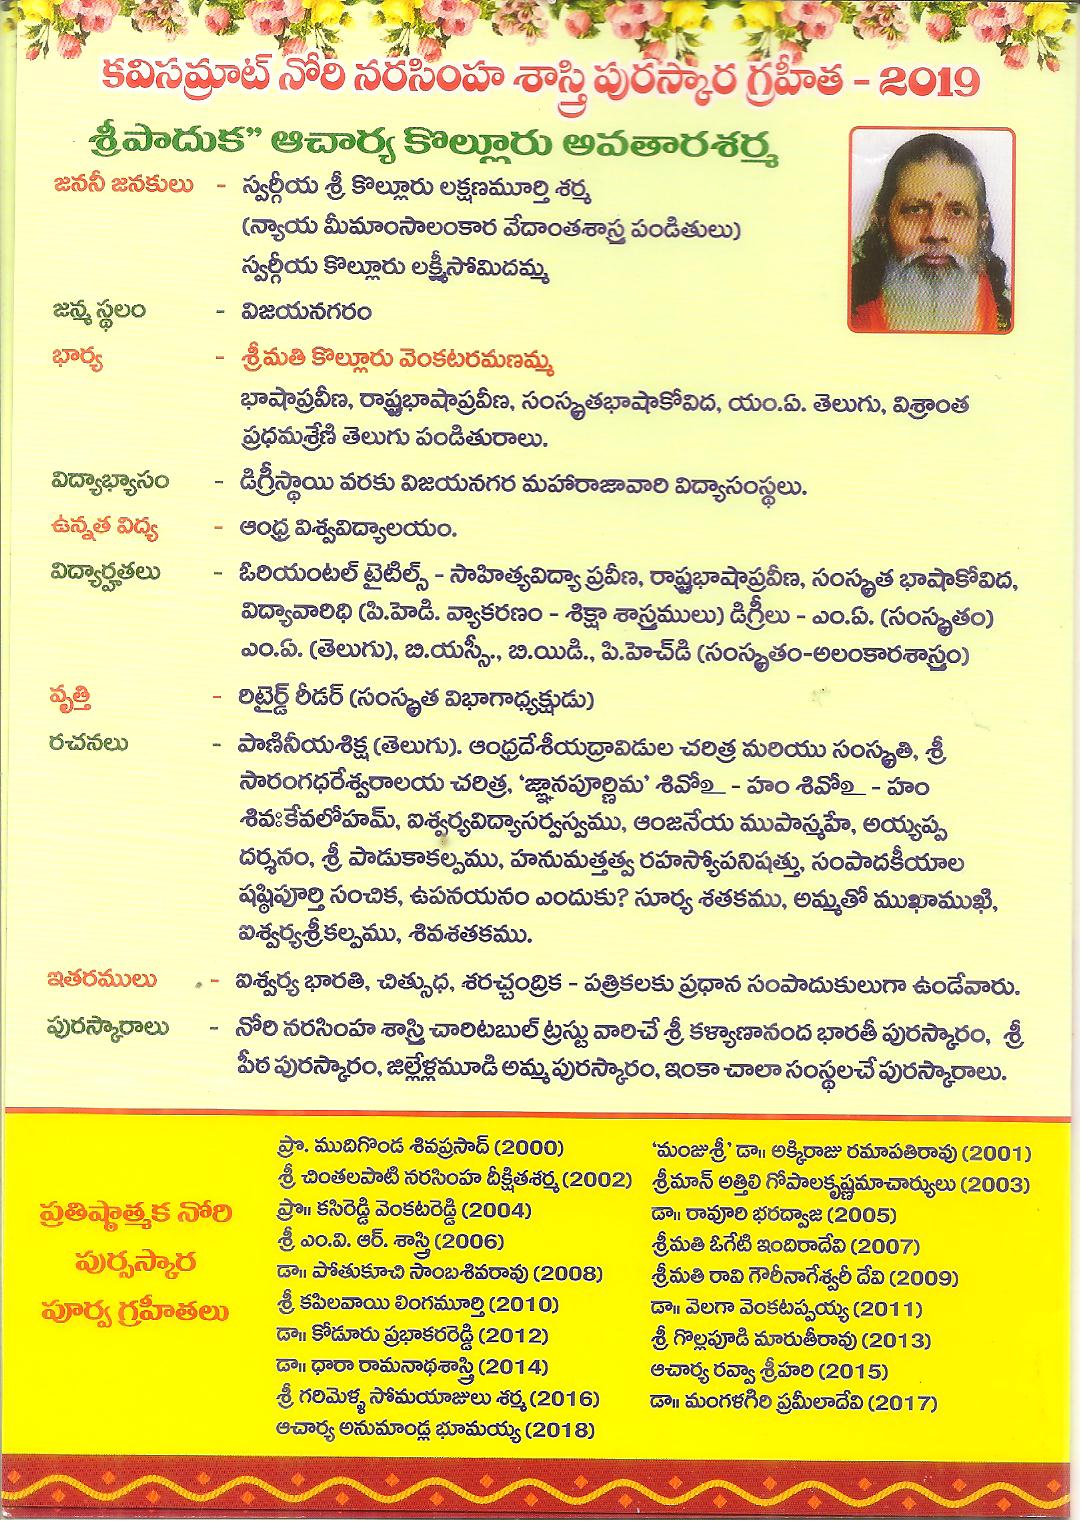 కవిసమ్రాట్ నోరి నరసింహ శాస్త్రి పురస్కార గ్రహీత - 2019
శ్రీపాదుక” ఆచార్య కొల్లూరు అవతారశర్మ
జననీ జనకులు - స్వర్గీయ శ్రీ కొల్లూరు లక్షణమూర్తి శర్మ
(న్యాయ మీమాంసాలంకార వేదాంతశాస్త్ర పండితులు)
స్వర్గీయ కొల్లూరు లక్ష్మీసోమిదమ్మ
జన్మ స్థలం - విజయనగరం
భార్య - శ్రీమతి కొల్లూరు వెంకటరమణమ్మ
భాషాప్రవీణ, రాష్ట్రభాషాప్రవీణ, సంస్కృతభాషాకోవిద, యం.ఏ. తెలుగు, విశ్రాంత
ప్రధమశ్రేణి తెలుగు పండితురాలు.
విద్యాభ్యాసం - డిగ్రీస్థాయి వరకు విజయనగర మహారాజావారి విద్యాసంస్థలు.
ఉన్నత విద్య - ఆంధ్ర విశ్వవిద్యాలయం.
విద్యార్హతలు - ఓరియంటల్ టైటిల్స్ - సాహిత్యవిద్యా ప్రవీణ, రాష్ట్రభాషాప్రవీణ, సంస్కృత భాషాకోవిద,
విద్యావారిధి (పి.హెడి. వ్యాకరణం - శిక్షా శాస్త్రములు) డిగ్రీలు - ఎం.ఏ. (సంస్కృతం)
ఎం.ఏ. (తెలుగు), బి.యస్సీ., బి.యిడి., పి.హెచ్‌డి (సంస్కృతం-అలంకారశాస్త్రం)
వృత్తి - రిటైర్డ్ రీడర్ (సంస్కృత విభాగాధ్యక్షుడు)
రచనలు - పాణినీయశిక్ష (తెలుగు). ఆంధ్రదేశీయద్రావిడుల చరిత్ర మరియు సంస్కృతి, శ్రీ
సారంగధరేశ్వరాలయ చరిత్ర, ‘జ్ఞానపూర్ణిమ’ శివోఽ - హం శివోఽ - హం
శివఃకేవలోహమ్, ఐశ్వర్యవిద్యాసర్వస్వము, ఆంజనేయ ముపాస్మహే, అయ్యప్ప
దర్శనం, శ్రీ పాదుకాకల్పము, హనుమత్తత్వ రహస్యోపనిషత్తు, సంపాదకీయాల
షష్ఠిపూర్తి సంచిక, ఉపనయనం ఎందుకు? సూర్య శతకము, అమ్మతో ముఖాముఖి,
ఐశ్వర్యశ్రీకల్పము, శివశతకము.
ఇతరములు - ఐశ్వర్య భారతి, చిత్సుధ, శరచ్చంద్రిక - పత్రికలకు ప్రధాన సంపాదుకులుగా ఉండేవారు.
పురస్కారాలు - నోరి నరసింహ శాస్త్రి చారిటబుల్ ట్రస్టు వారిచే శ్రీ కళ్యాణానంద భారతీ పురస్కారం, శ్రీ
పీఠ పురస్కారం, జిల్లేళ్లమూడి అమ్మ పురస్కారం, ఇంకా చాలా సంస్థలచే పురస్కారాలు.
ప్రతిష్ఠాత్మక నోరి
పుర్సస్కార
పూర్వ గ్రహీతలు
ప్రొ. ముదిగొండ శివప్రసాద్ (2000)
‘మంజుశ్రీ’ డా॥ అక్కిరాజు రమాపతిరావు (2001)
శ్రీ చింతలపాటి నరసింహ దీక్షితశర్మ (2002)
శ్రీమాన్ అత్తిలి గోపాలకృష్ణమాచార్యులు (2003)
ప్రొ॥ కసిరెడ్డి వెంకటరెడ్డి (2004)
డా॥ రావూరి భరద్వాజ (2005)
శ్రీ ఎం.వి. ఆర్. శాస్త్రి (2006)
శ్రీమతి ఓగేటి ఇందిరాదేవి (2007)
డా॥ పోతుకూచి సాంబశివరావు (2008)
శ్రీమతి రావి గౌరీనాగేశ్వరీ దేవి (2009)
శ్రీ కపిలవాయి లింగమూర్తి (2010)
డా॥ వెలగా వెంకటప్పయ్య (2011)
డా॥ కోడూరు ప్రభాకరరెడ్డి (2012)
శ్రీ గొల్లపూడి మారుతీరావు (2013)
డా॥ ధారా రామనాథశాస్త్రి (2014)
ఆచార్య రవ్వా శ్రీహరి (2015)
శ్రీ గరిమెళ్ళ సోమయాజులు శర్మ (2016)
డా॥ మంగళగిరి ప్రమీలాదేవి (2017)
ఆచార్య అనుమాండ్ల భూమయ్య (2018)